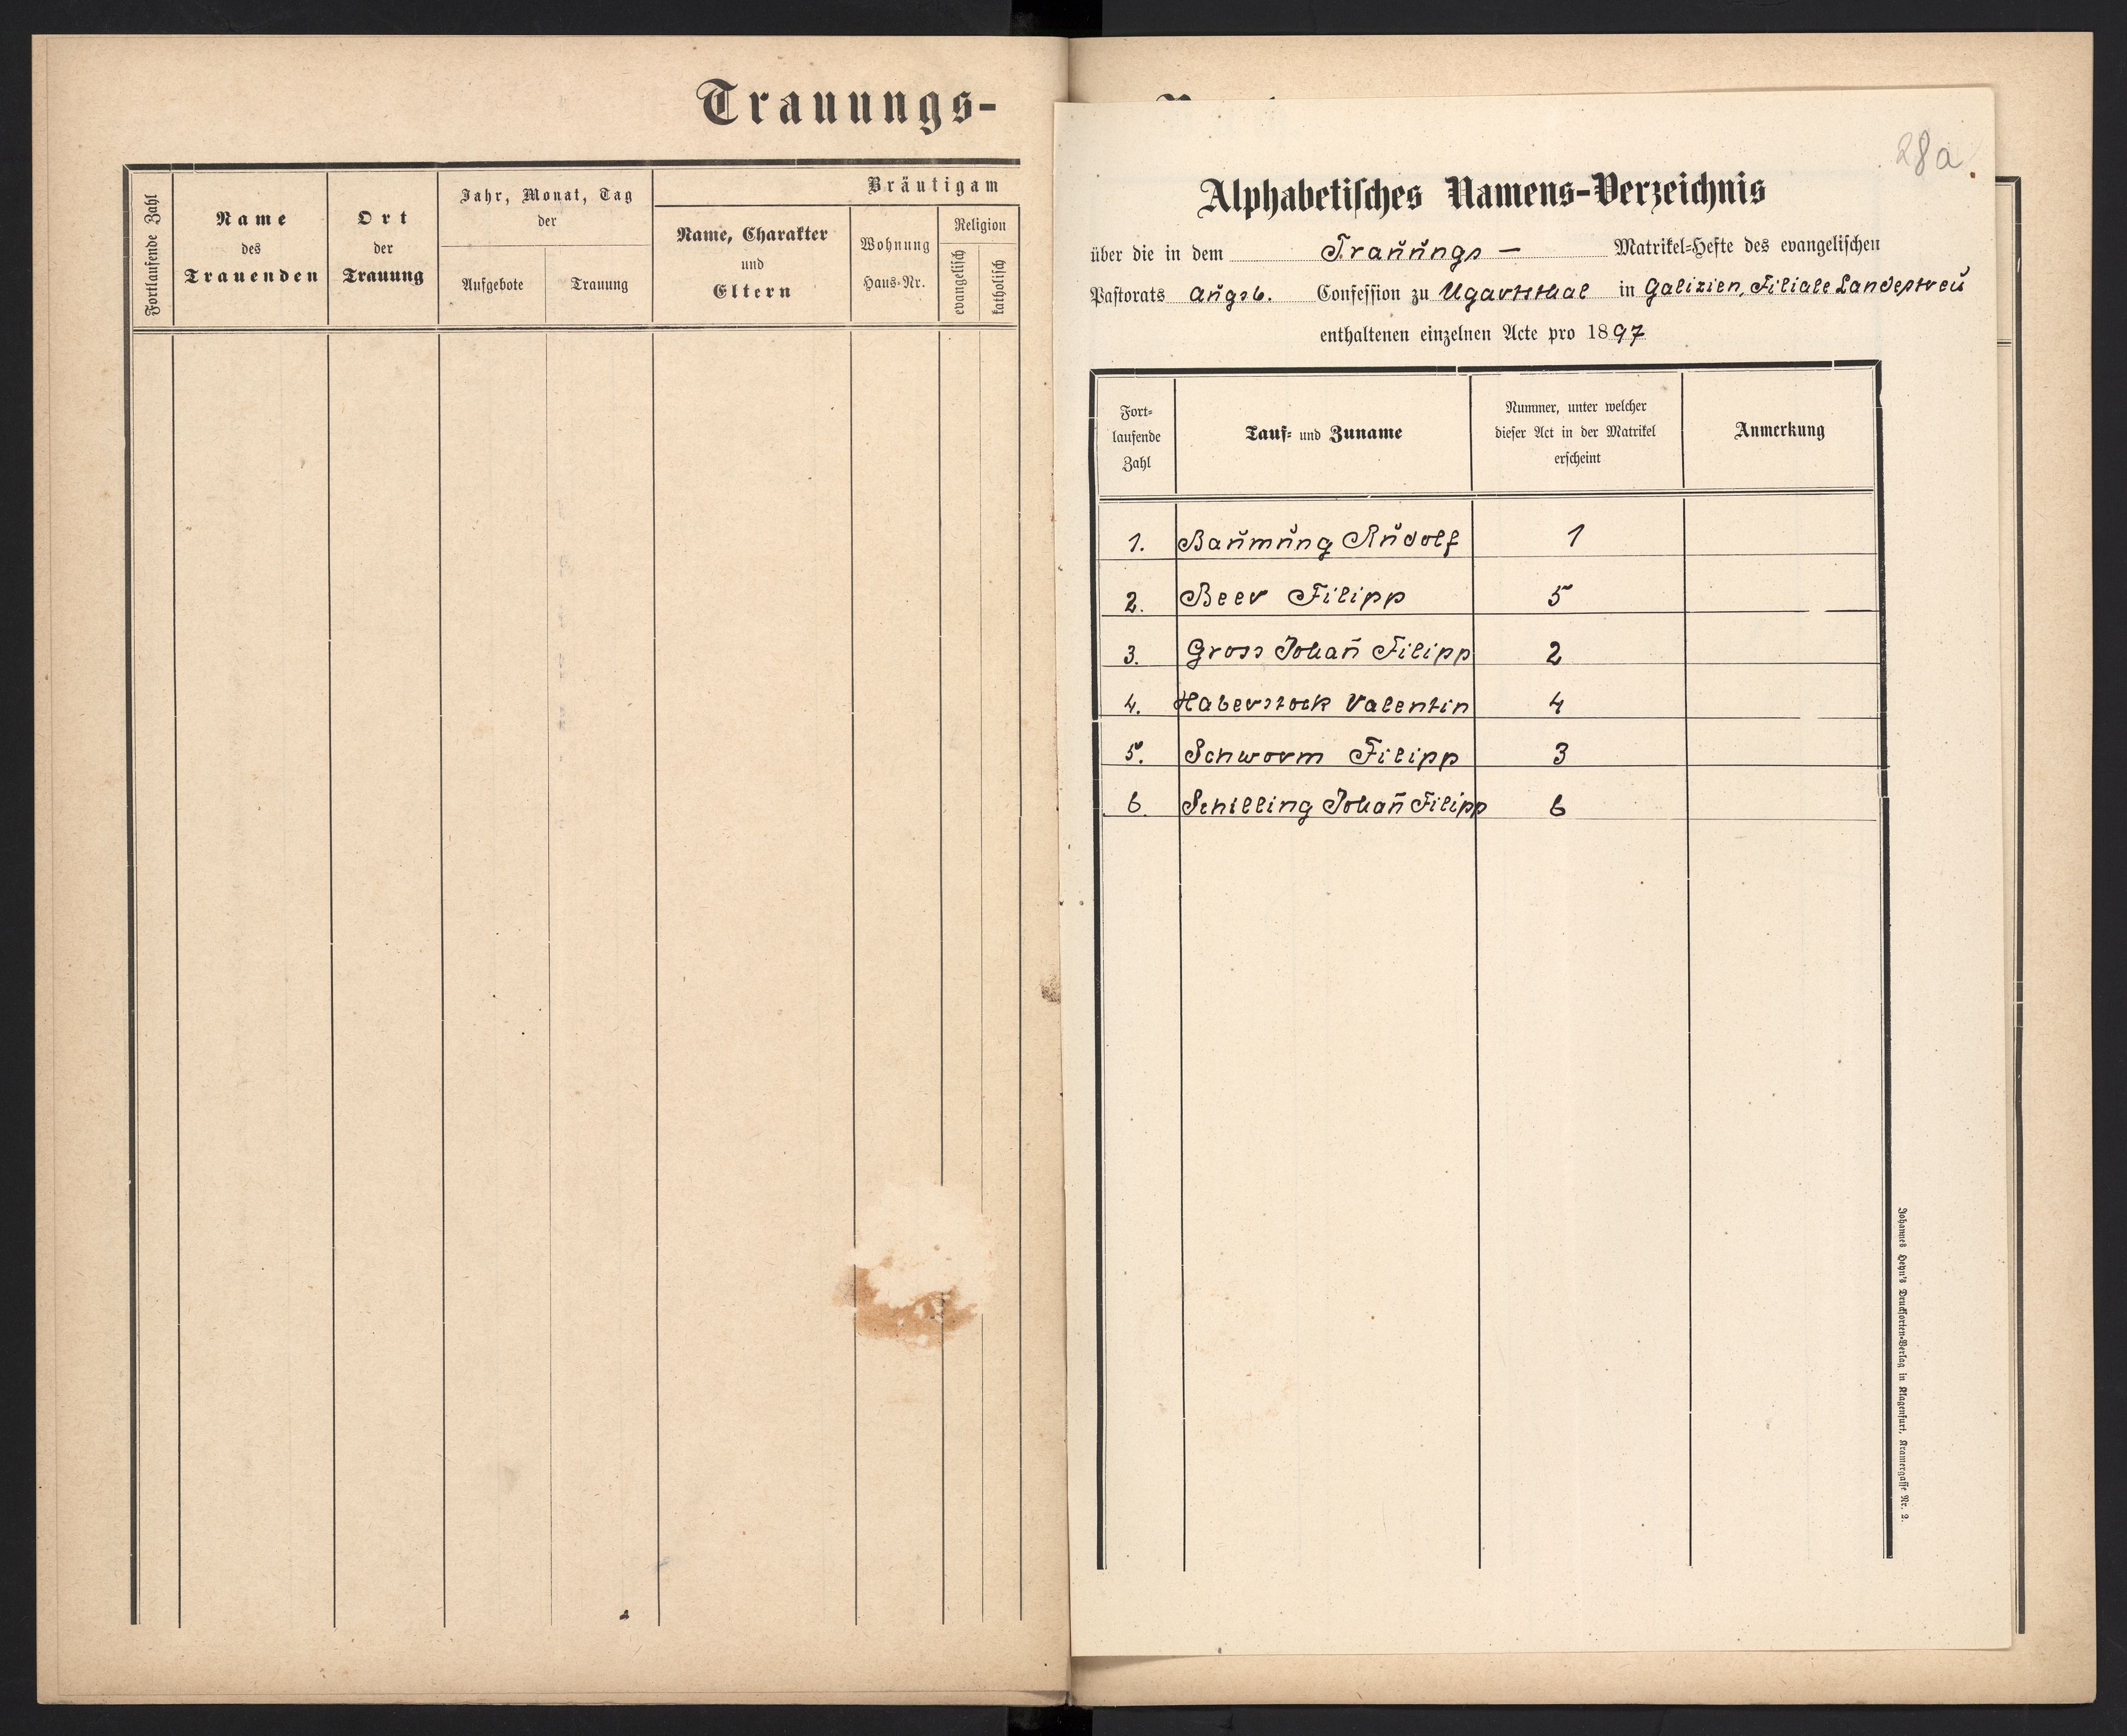 Trauungs-
Fortlaufende Zahl
Name
des
Trauenden
Ort
der
Trauung
Jahr, Monat, Tag
der
Aufgebote
Trauung
Bräutigam
Name, Charakter
und
Eltern
Wohnung
Haus-Nr.
Religion
evangelisch
katholisch
28a
Alphabetisches Namens-Verzeichnis
über die in dem Trauungs — Matrikel-Hefte des evangelischen
Pastorats Augsb. Confession zu Ugartsthal in Galizien, Filiale Landestreu
enthaltenen einzelnen Acte pro 1897
Fort-
laufende
Zahl
Tauf- und Zuname
Nummer, unter welcher
dieser Act in der Matrikel
erscheint
Anmerkung
1. Baumung Rudolf 1
2. Beer Filipp 5
3. Gross Johan̄ Filipp 2
4. Haberstock Valentin 4
5. Schworm Filipp 3
6. Schilling Johan̄ Filipp 6
Johannes Heyn's Drucksorten-Verlag in Klagenfurt, Kramergasse Nr. 2.